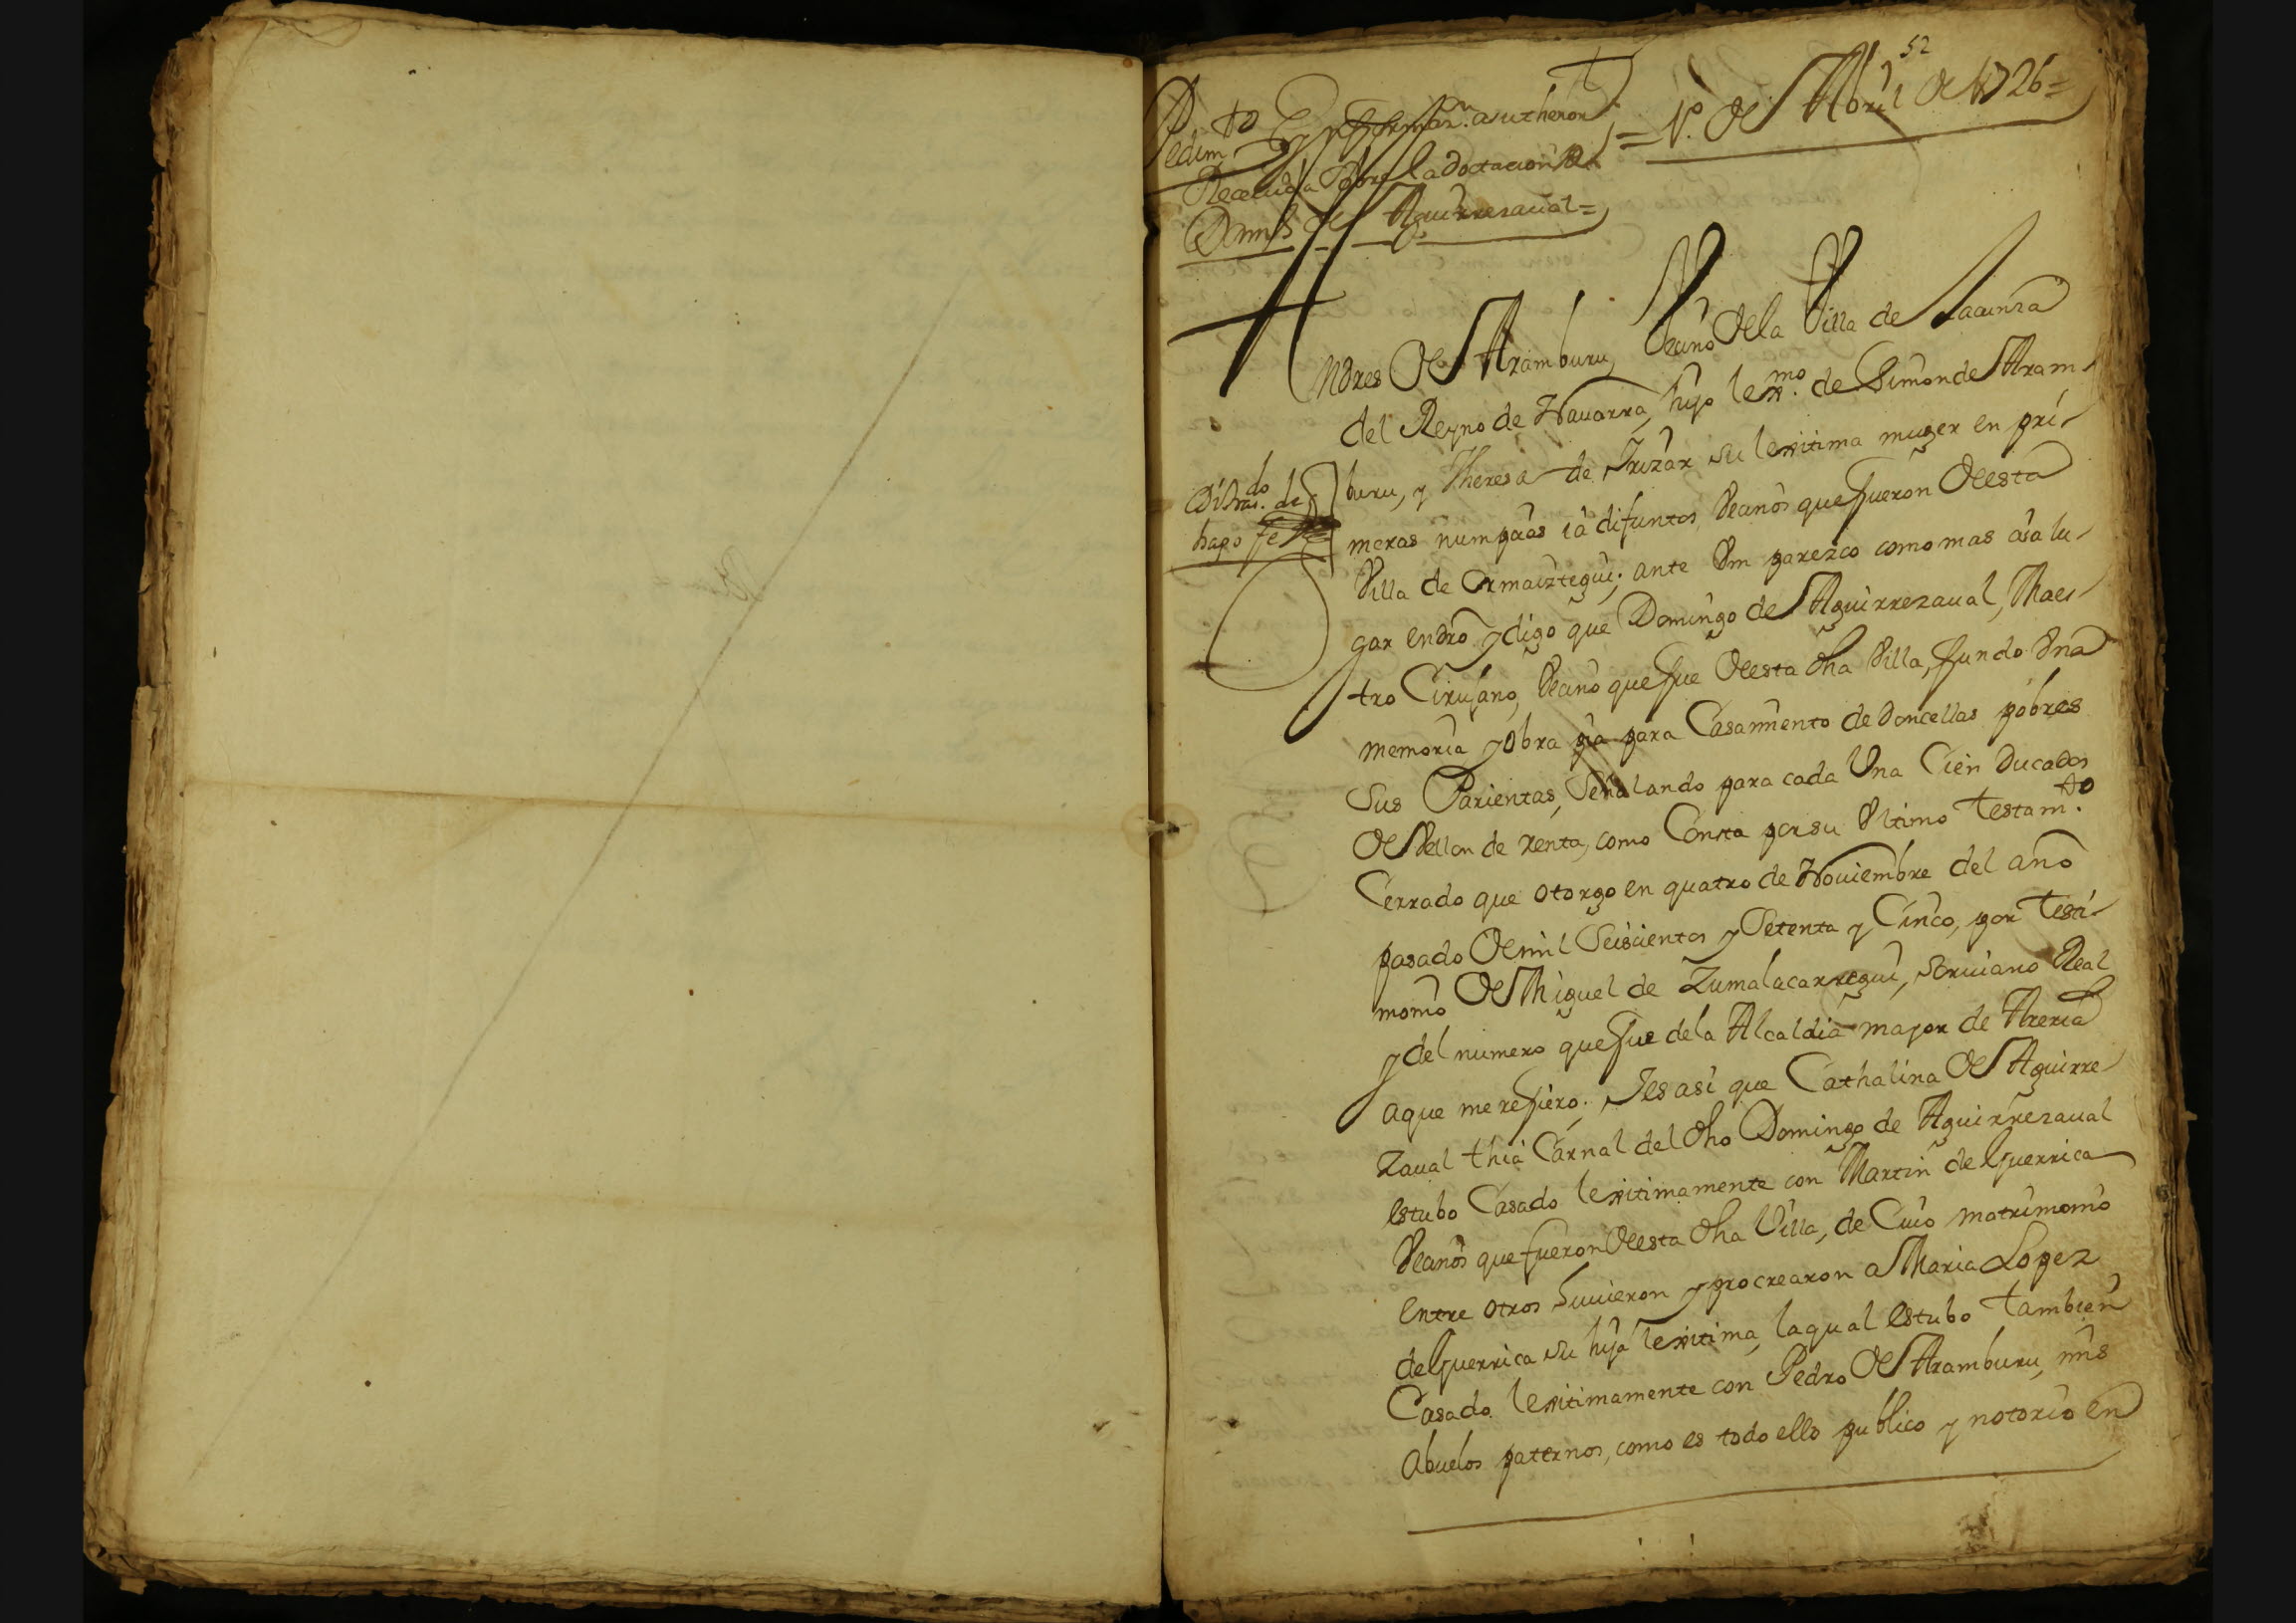 52
Pedim.to y Informaz.n a su thenor
Receuida sobre la dotacion de
Dom.o de Aguirrezaual =
= 1.o de Abril de 1726 =
Andres de Aramburu, vecino de la Villa de Lacunza
del Reyno de Nauarra, hijo lex.mo de Simon de Aram-
buru, y Theresa de Irizar su lexitima muger en pri-
meras numpçias ia difuntos, Vecinos que fueron de esta
Villa de Ormaiztegui; ante Vm parezco como mas aia lu-
gar en dro y digo que Domingo de Aguirrezaual, Maes-
tro Cirujano, Vecino que fue de esta dha Villa, fundo Vna
memoria y obra pia para Casamiento de doncellas pobres
sus Parientas, señalando para cada Vna Cien Ducados
de Vellon de renta, como Consta por su Vltimo testam.to
Cerrado que otorgo en quatro de Nouiembre del año
pasado de mil Seiscientos y Setenta y Cinco, por testi-
monio de Miguel de Zumalacarregui, scriuano Real
y del numero que fue de la Alcaldia mayor de Areria
a que me refiero. I es asi que Cathalina de Aguirre-
zaual thia Carnal del dho Domingo de Aguirrezaual
estubo Casado lexitimamente con Martin de Guerrica
Vecinos que fueron de esta dha Villa, de Cuio matrimonio
entre otros huuieron y procrearon a Maria Lopez
de Guerrica su hija lexitima, la qual estubo tambien
Casado lexitimamente con Pedro de Aramburu, mis
Abuelos paternos, como es todo ello publico y notorio en
do de
hago fe